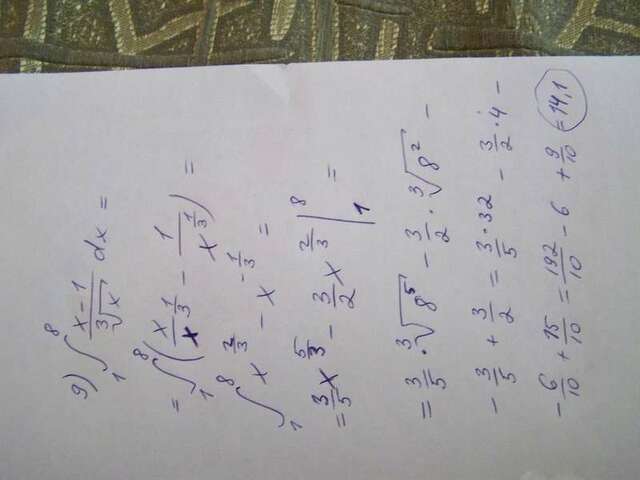 9) ∫₁⁸ (x-1)/∛x dx =
= ∫₁⁸ (x/x^(1/3) - 1/x^(1/3)) =
∫₁⁸ x^(2/3) - x^(-1/3) =
= 3/5 x^(5/3) - 3/2 x^(2/3) |₁⁸ =
= 3/5 · ∛8⁵ - 3/2 · ∛8² -
- 3/5 + 3/2 = 3/5 · 32 - 3/2 · 4 -
- 6/10 + 15/10 = 192/10 - 6 + 9/10 = 14,1